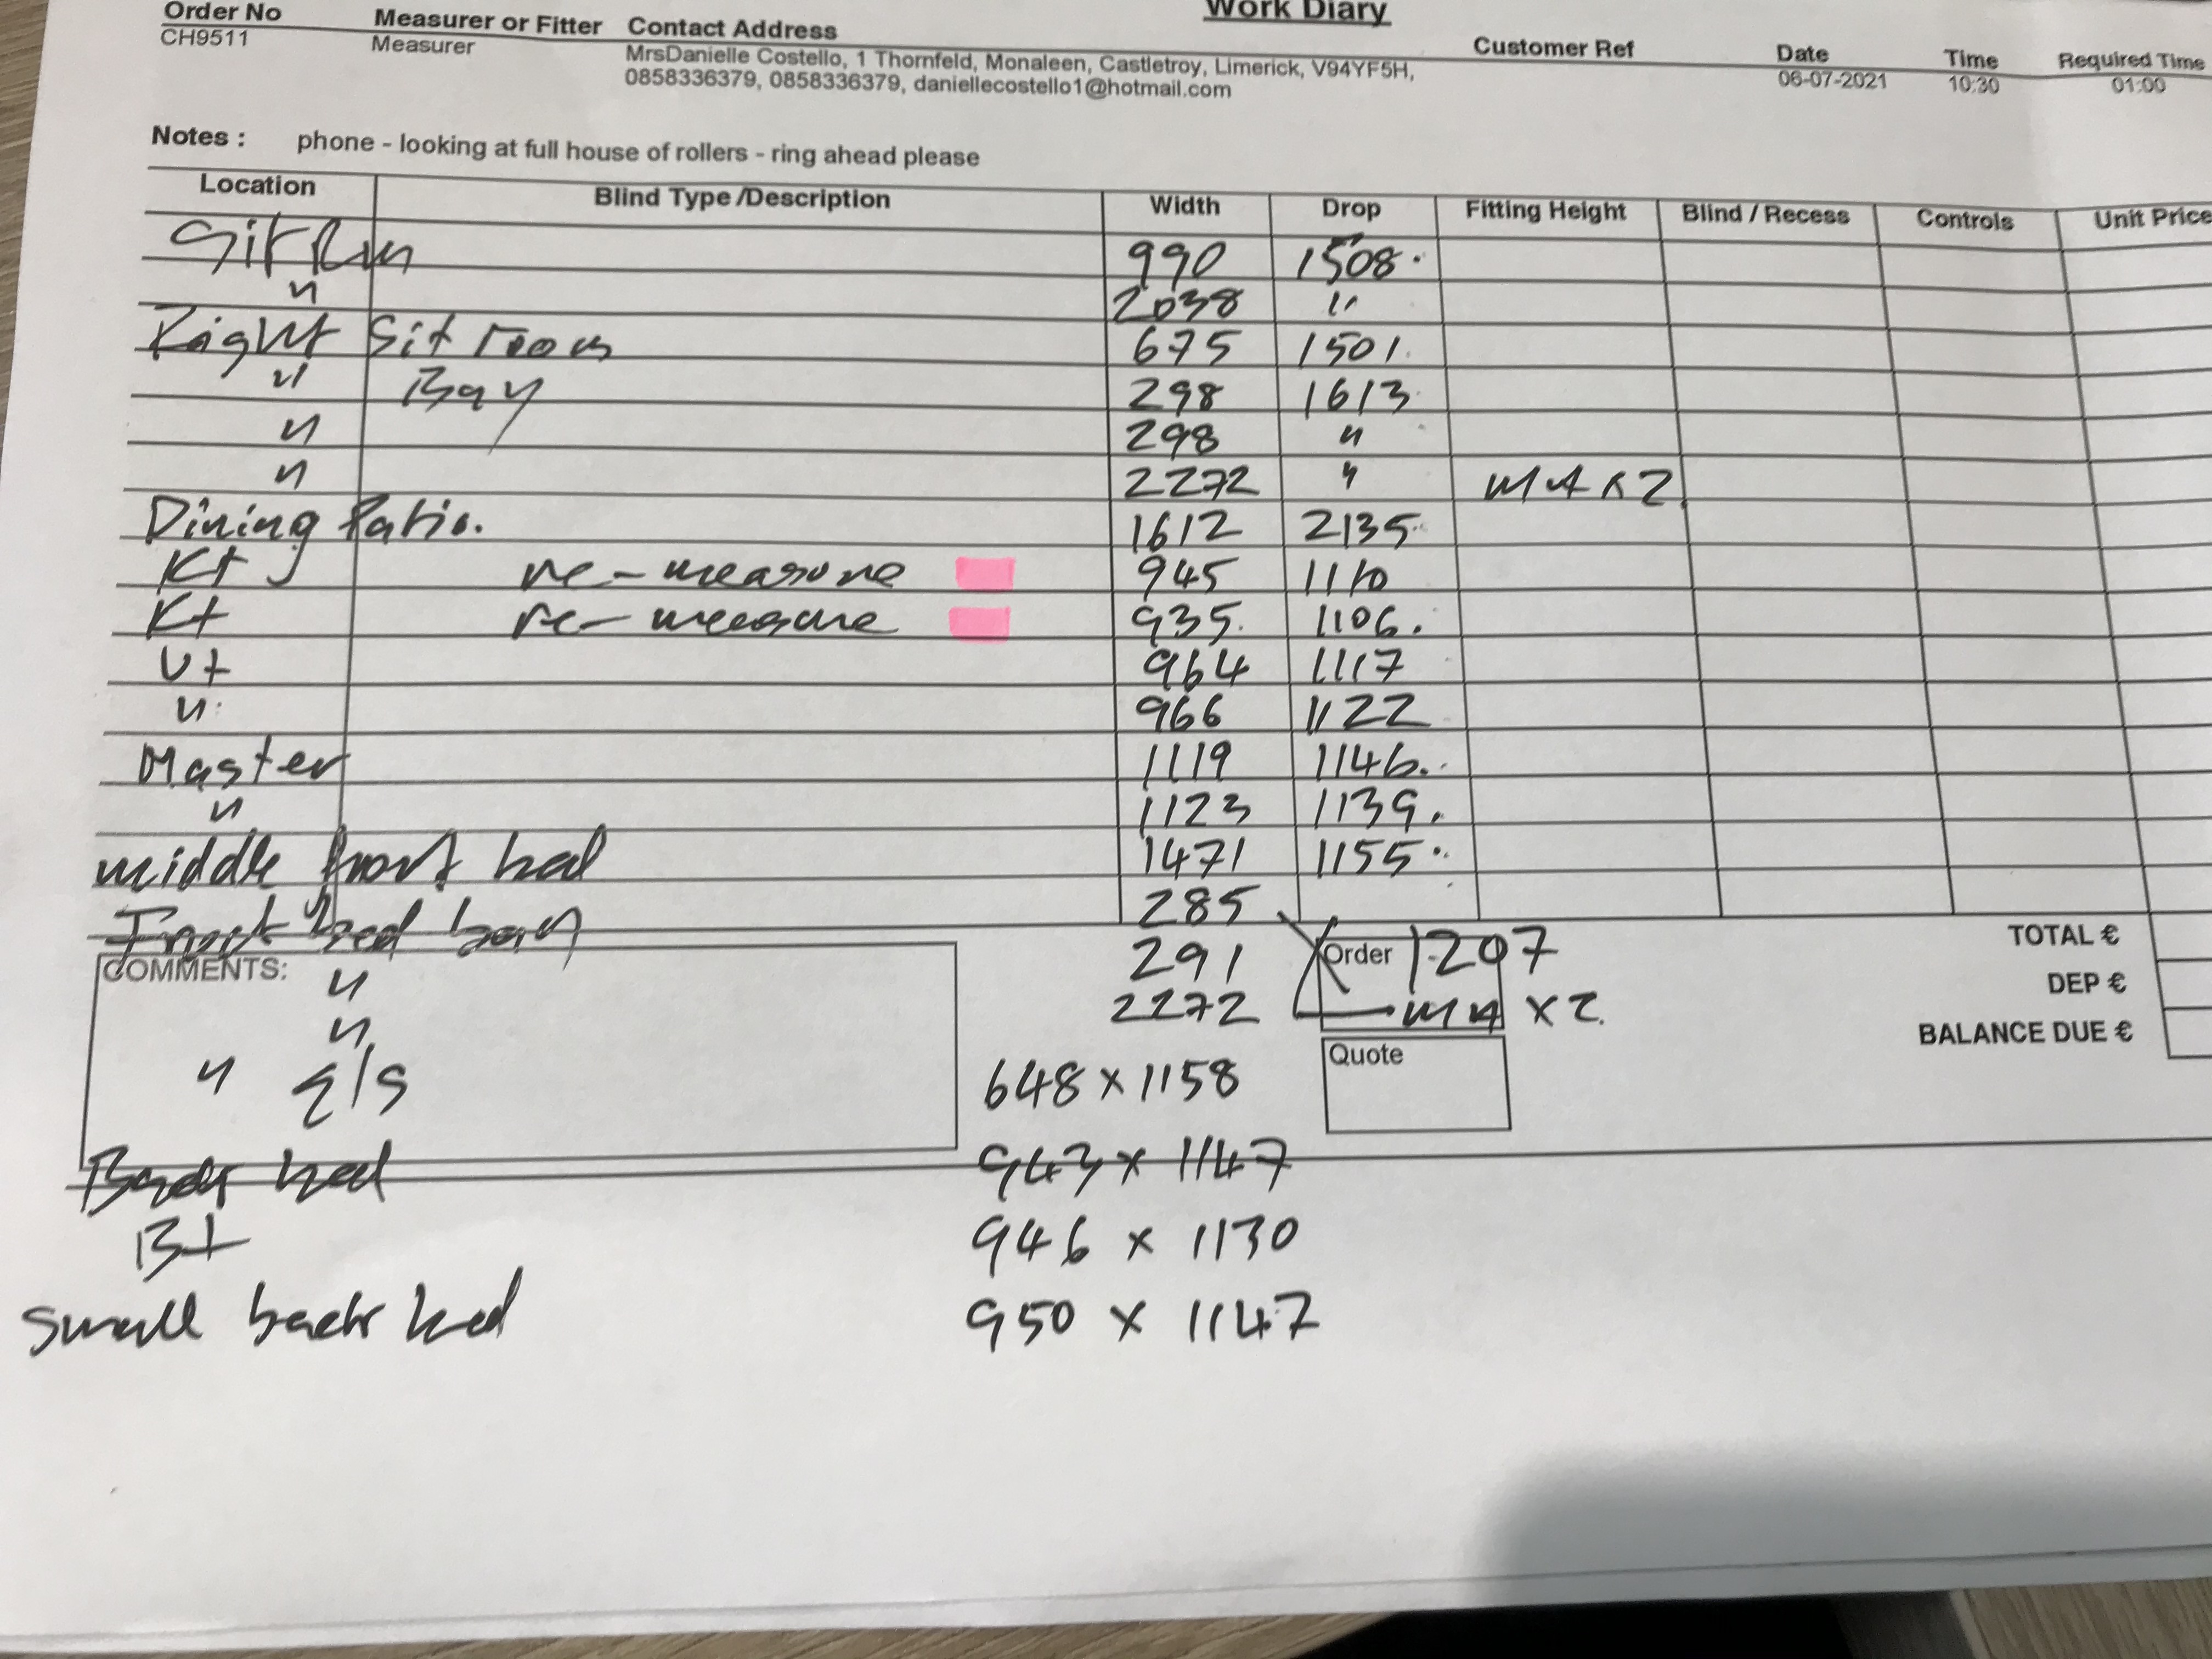 Work Diary
Order No Measurer or Fitter Contact Address Customer Ref Date Time Required Time
CH9511 Measurer MrsDanielle Costello, 1 Thornfeld, Monaleen, Castletroy, Limerick, V94YF5H, 06-07-2021 10:30 01:00
0858336379, 0858336379, daniellecostello1@hotmail.com
Notes : phone - looking at full house of rollers - ring ahead please
Location Blind Type /Description Width Drop Fitting Height Blind / Recess Controls Unit Price
Sit Rm 990 1508.
" 2038 "
Right Sit room 675 1501.
" Bay 298 1613
" 298 "
" 2272 "
Dining Patio. 1612 2135
Kt re-measure 945 1110
Kt re-measure 935. 1106.
Ut 964 1117
" 966 1122
Master 1119 1146.
" 1123 1139.
middle front bed 1471 1155.
Front bed bay 285
COMMENTS: " 291 Order 1207
" 2272 x 2.
" 648 x 1158 Quote
Back bed 943 x 1147
Bt 946 x 1130
small back bed 950 x 1147
TOTAL €
DEP €
BALANCE DUE €